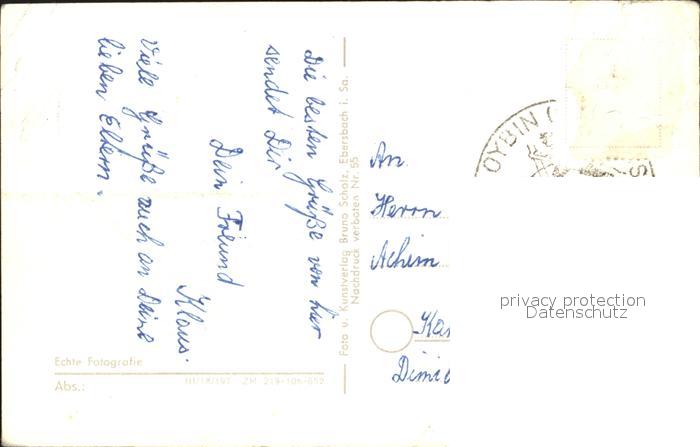 Die besten Grüße von hier
sendet Dir
Dein Freund
Klaus.
Viele Grüße auch an Deine
lieben Eltern.
Foto u. Kunstverlag Bruno Scholz, Ebersbach i. Sa.
Nachdruck verboten Nr. 55
Echte Fotografie
Abs.:
III/18/197 ZM 219-106-652
OYBIN
An
Herrn
Achim
privacy protection
Datenschutz